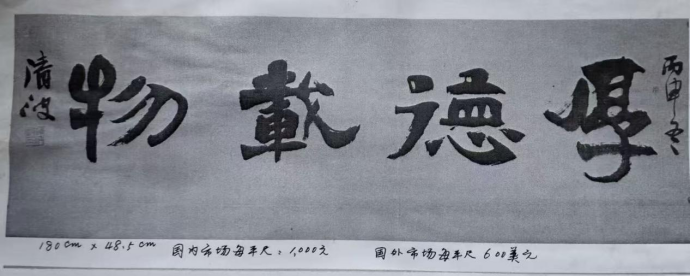 丙申冬
厚德載物
清波
180cm x 48.5cm 国内市场每平尺：1,000元 国外市场每平尺600美元